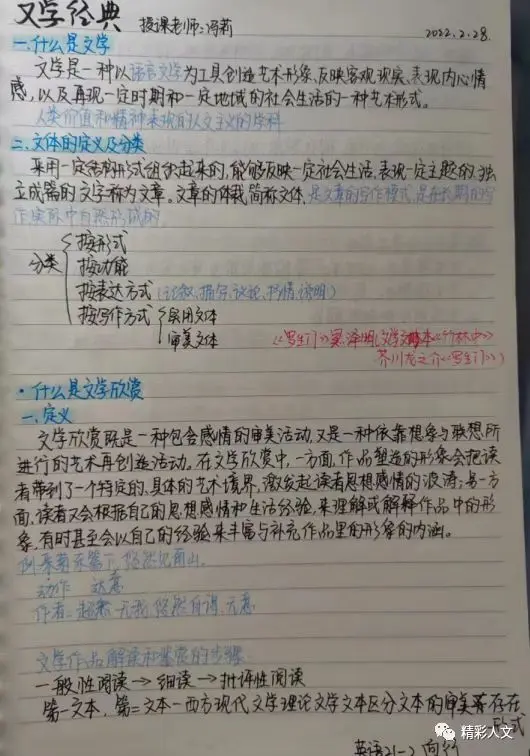 文学经典 授课老师:冯莉 2022.2.28.
一.什么是文学
文学是一种以语言文学为工具创造艺术形象、反映客观现实、表现内心情
感,以及再现一定时期和一定地域的社会生活的一种艺术形式。
人类价值和精神表现的人文主义的学科
二.文体的定义及分类
采用一定结构形式组织起来的,能够反映一定社会生活、表现一定主题的、独
立成篇的文字称为文章。文章的体裁简称文体,是文章的写作模式,是在长期的写
作实际中自然形成的
分类
按形式
按功能
按表达方式(记叙、描写、议论、抒情、说明)
按写作方式 实用文体
审美文体
《罗生门》黑泽明,文学文本《竹林中》
芥川龙之介《罗生门》)
·什么是文学欣赏
一.定义
文学欣赏既是一种包含感情的审美活动,又是一种依靠想象与联想所
进行的艺术再创造活动。在文学欣赏中,一方面,作品塑造的形象会把读
者带到了一个特定的、具体的艺术境界,激发起读者思想感情的波涛;另一方
面,读者又会根据自己的思想感情和生活经验,来理解或解释作品中的形
象,有时甚至会以自己的经验来丰富与补充作品里的形象的内涵。
例:采菊东篱下,悠然见南山.
动作 达意
作者:超然 无我 悠然自得、无意
文学作品解读和鉴赏的步骤
一般性阅读→细读→批评性阅读
第一文本,第二文本—西方现代文学理论文学文本区分文本的审美存在
形式
英语21-2
精彩人文